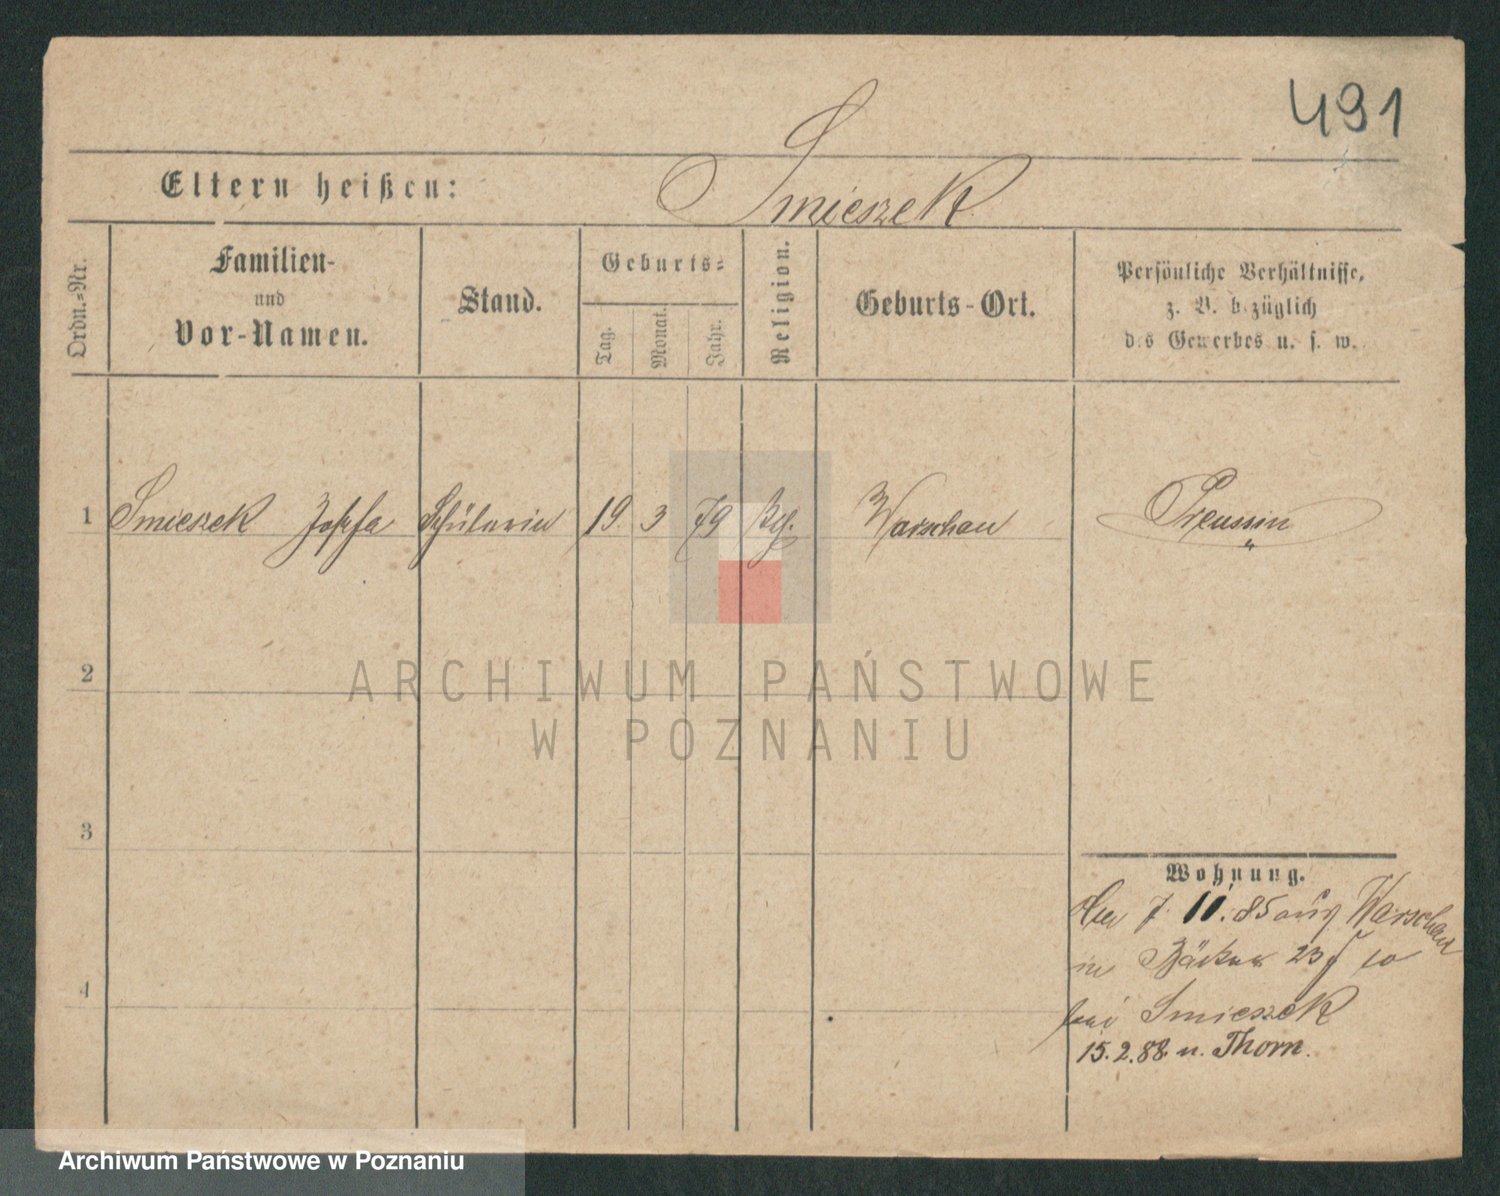 491
Smieszek
Eltern heißen:
Ordn.-Nr.
Familien-
und
Vor-Namen.
Stand.
Geburts-
Tag.
Monat.
Jahr.
Religion.
Geburts-Ort.
Persönliche Verhältnisse,
z. B. bezüglich
des Gewerbes u. s. w.
1 Smieszek Josefa Schülerin 19. 3 79 Warschau Preussin
2
ARCHIWUM PAŃSTWOWE
W POZNANIU
3
Wohnung.
7. 10. 85 Warschau
in Bäcker 23
4
bei Smieszek
15. 2. 88. n. Thorn.
Archiwum Państwowe w Poznaniu